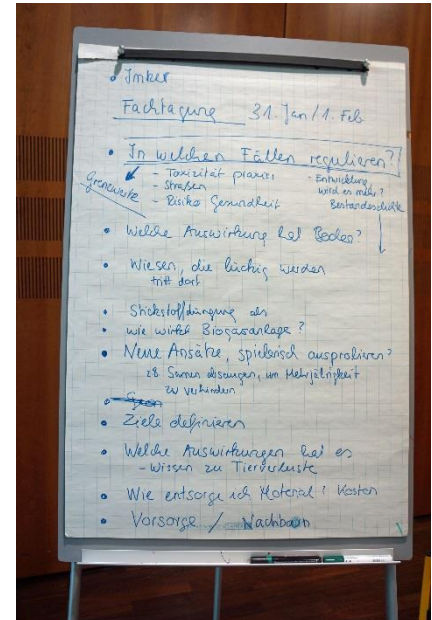 • Imker
Fachtagung 31. Jan / 1. Feb
• In welchen Fällen regulieren?
Grenzwerte
- Toxizität praxis
- Straßen
- Risiko Gesundheit
- Entwicklung
wird es mehr?
Bestandesdichte
• Welche Auswirkung hat Boden?
• Wiesen, die lückig werden
tritt dort
• Stickstoffdüngung als
• wie wirkt Biogasanlage?
• Neue Ansätze, spielerisch ausprobieren?
zB Samen absaugen, um Mehrjährigkeit
zu verhindern
• Ziele definieren
• Welche Auswirkungen hat es
- Wissen zu Tierverluste
• Wie entsorge ich Material? Kosten
• Vorsorge / Nachbarn